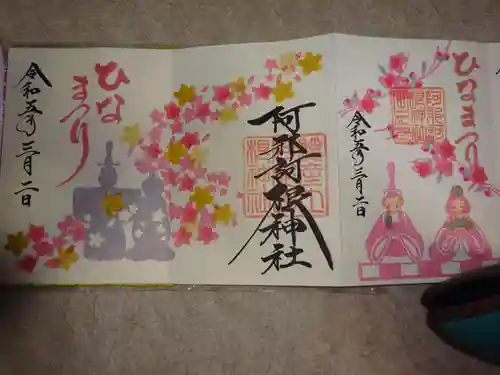 令和五年
三月二日
ひな
まつり
阿邪訶根神社
ひなまつり
令和五年
三月二日